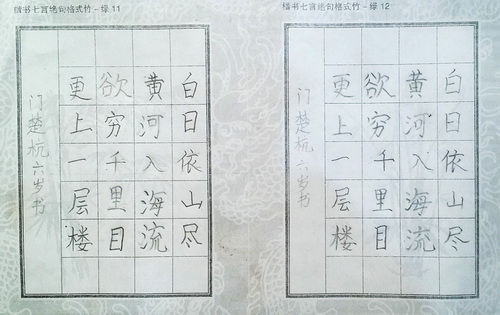 楷书七言绝句格式竹－绿 11
白日依山尽
黄河入海流
欲穷千里目
更上一层楼
门楚杭六岁书
楷书七言绝句格式竹－绿 12
白日依山尽
黄河入海流
欲穷千里目
更上一层楼
门楚杭六岁书